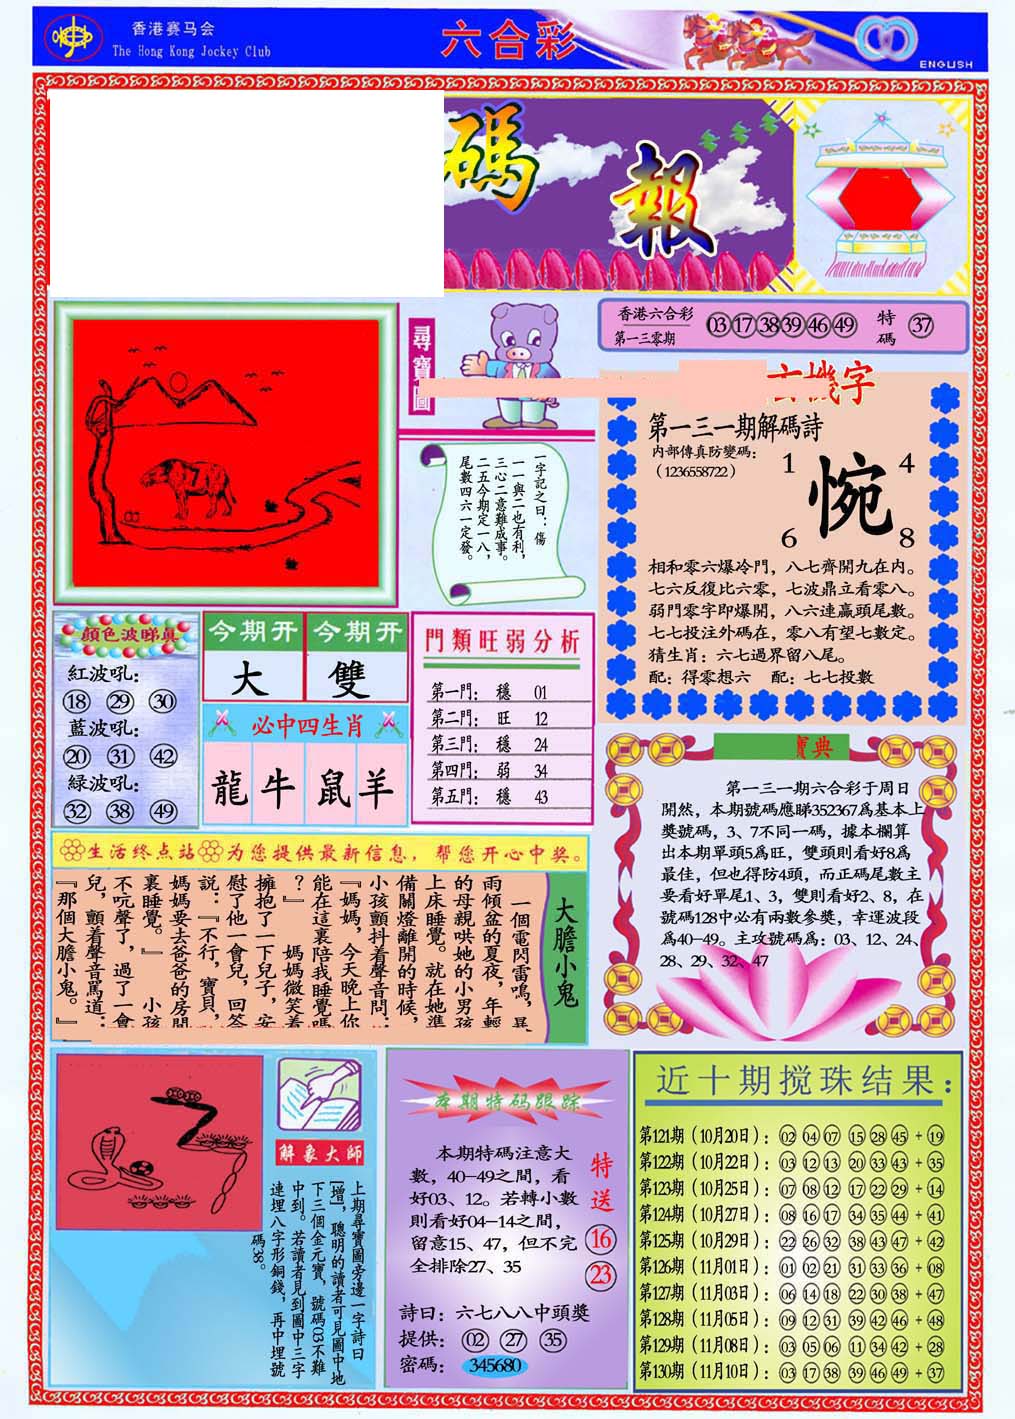 香港赛马会
The Hong Kong Jockey Club
六合彩
ENGLISH
碼報
尋寶圖
香港六合彩
第一三零期
03 17 38 39 46 49
特碼
37
機字
第一三一期解碼詩
内部傳真防變碼：
（1236558722）
1 4
惋
6 8
相和零六爆冷門，八七齊開九在内。
七六反復比六零，七波鼎立看零八。
弱門零字即爆開，八六連贏頭尾數。
七七投注外碼在，零八有望七數定。
猜生肖：六七過界留八尾。
配：得零想六 配：七七投數
一字記之曰：傷
一一與二也有利，
三心二意難成事。
二五今期定一八，
尾數四六一定發。
顏色波睇真
紅波吼：
18 29 30
藍波吼：
20 31 42
綠波吼：
32 38 49
今期开 今期开
大 雙
必中四生肖
龍 牛 鼠 羊
門類旺弱分析
第一門： 穩 01
第二門： 旺 12
第三門： 穩 24
第四門： 弱 34
第五門： 穩 43
寶典
第一三一期六合彩于周日
開然，本期號碼應睇352367爲基本上
獎號碼，3、7不同一碼，據本欄算
出本期單頭5爲旺，雙頭則看好8爲
最佳，但也得防4頭，而正碼尾數主
要看好單尾1、3，雙則看好2、8，在
號碼128中必有兩數參獎，幸運波段
爲40-49。主攻號碼爲：03、12、24、
28、29、32、47
生活终点站 为您提供最新信息，帮您开心中奖。
大膽小鬼
一個電閃雷鳴，暴
雨傾盆的夏夜，年輕
的母親哄她的小男孩
上床睡覺。就在她準
備關燈離開的時候，
小孩顫抖着聲音問：
『媽媽，今天晚上你
能在這裏陪我睡覺嗎
？』 媽媽微笑着
擁抱了一下兒子，安
慰了他一會兒，回答
説：『不行，寶貝，
媽媽要去爸爸的房間
裏睡覺。』 小孩
不吭聲了，過了一會
兒，顫着聲音罵道：
『那個大膽小鬼。』
解象大師
上期尋寶圖旁邊一字詩曰
[增]，聰明的讀者可見圖中地
下三個金元寶，號碼03不難
中到。若讀者見到圖中三字
連埋八字形銅錢，再中埋號
碼38。
本期特码跟踪
本期特碼注意大
數，40-49之間，看
好03、12。若轉小數
則看好04-14之間，
留意15、47，但不完
全排除27、35
特送
16
23
詩曰：六七八八中頭獎
提供： 02 27 35
密碼： 345680
近十期搅珠结果：
第121期（10月20日）：02 04 07 15 28 45 + 19
第122期（10月22日）：03 12 13 20 33 43 + 35
第123期（10月25日）：07 08 12 17 22 29 + 14
第124期（10月27日）：08 16 17 34 35 44 + 41
第125期（10月29日）：22 26 32 38 43 47 + 42
第126期（11月01日）：01 02 21 31 33 36 + 08
第127期（11月03日）：06 14 18 22 30 38 + 47
第128期（11月05日）：09 12 31 39 42 46 + 48
第129期（11月08日）：03 05 06 11 34 42 + 28
第130期（11月10日）：03 17 38 39 46 49 + 37